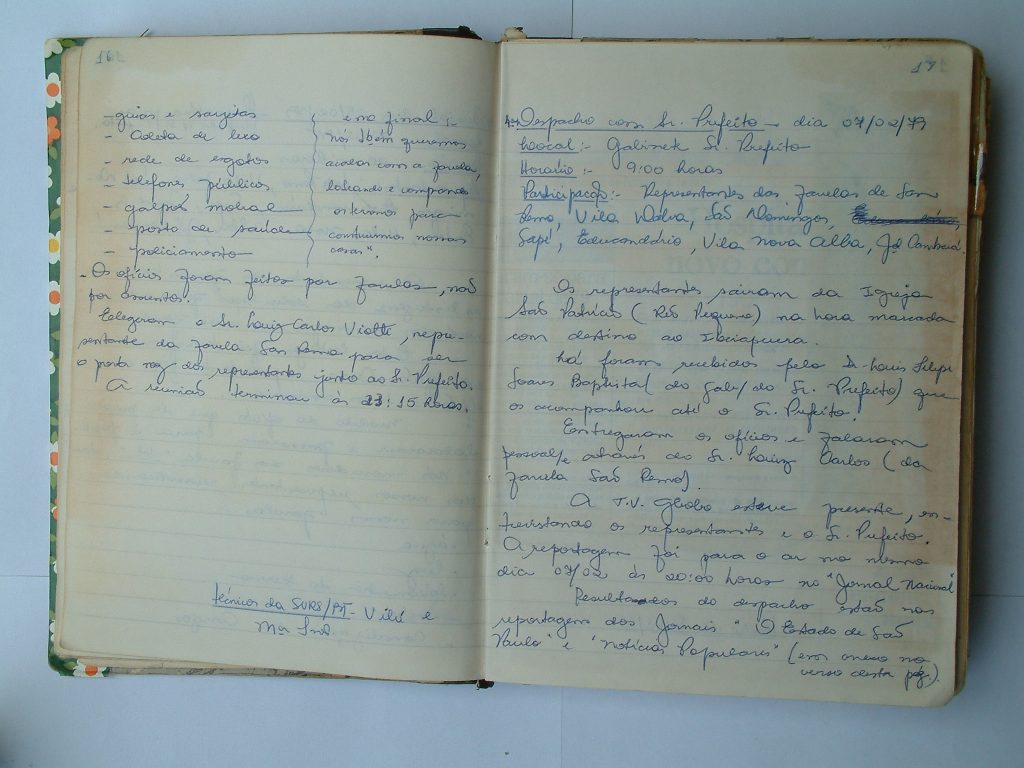 16
- guias e sarjetas
- Coleta de lixo
- rede de esgotos
- telefones públicos
- galpão
- posto de saúde
- policiamento
e no final :-
nós tbém queremos
acabar com a favela,
loteando e comprando
os terrenos para
construirmos nossas
casas".
- Os ofícios foram feitos por favelas, não
por assuntos.
Elegeram o Sr. Luiz Carlos Viotti, repre-
sentante da favela San Remo para ser
o porta voz dos representantes junto ao Sr. Prefeito.
A reunião terminou às 23:15 horas.
técnicos da SURS/BT- Vilú e
17
4- Despacho com Sr. Prefeito - dia 07/02/79
Local:- Gabinete Sr. Prefeito
Horário:- 9:00 horas
Participação:- Representantes das favelas de San
Remo, Vila Dalva, São Domingos,
Sapé, Educandário, Vila Nova Alba, Jd Cambará.
Os representantes sairam da Igreja
São Patrício (Rio Pequeno) na hora marcada
com destino ao Ibirapuera.
Lá foram recebidos pelo Dr Luis Felipe
Soares Baptista (do Gab/ do Sr. Prefeito) que
os acompanhou até o Sr. Prefeito.
Entregaram os ofícios e falaram
pessoal/e através do Sr. Luiz Carlos (da
favela San Remo).
A T.V. Globo esteve presente, en-
trevistando os representantes e o Sr. Prefeito.
A reportagem foi para o ar no mesmo
dia 07/02 às 20:00 horas no "Jornal Nacional"
Resultados do despacho estão nas
reportagens dos Jornais "O Estado de São
Paulo" e "Notícias Populares" (em anexo no
verso desta pág).